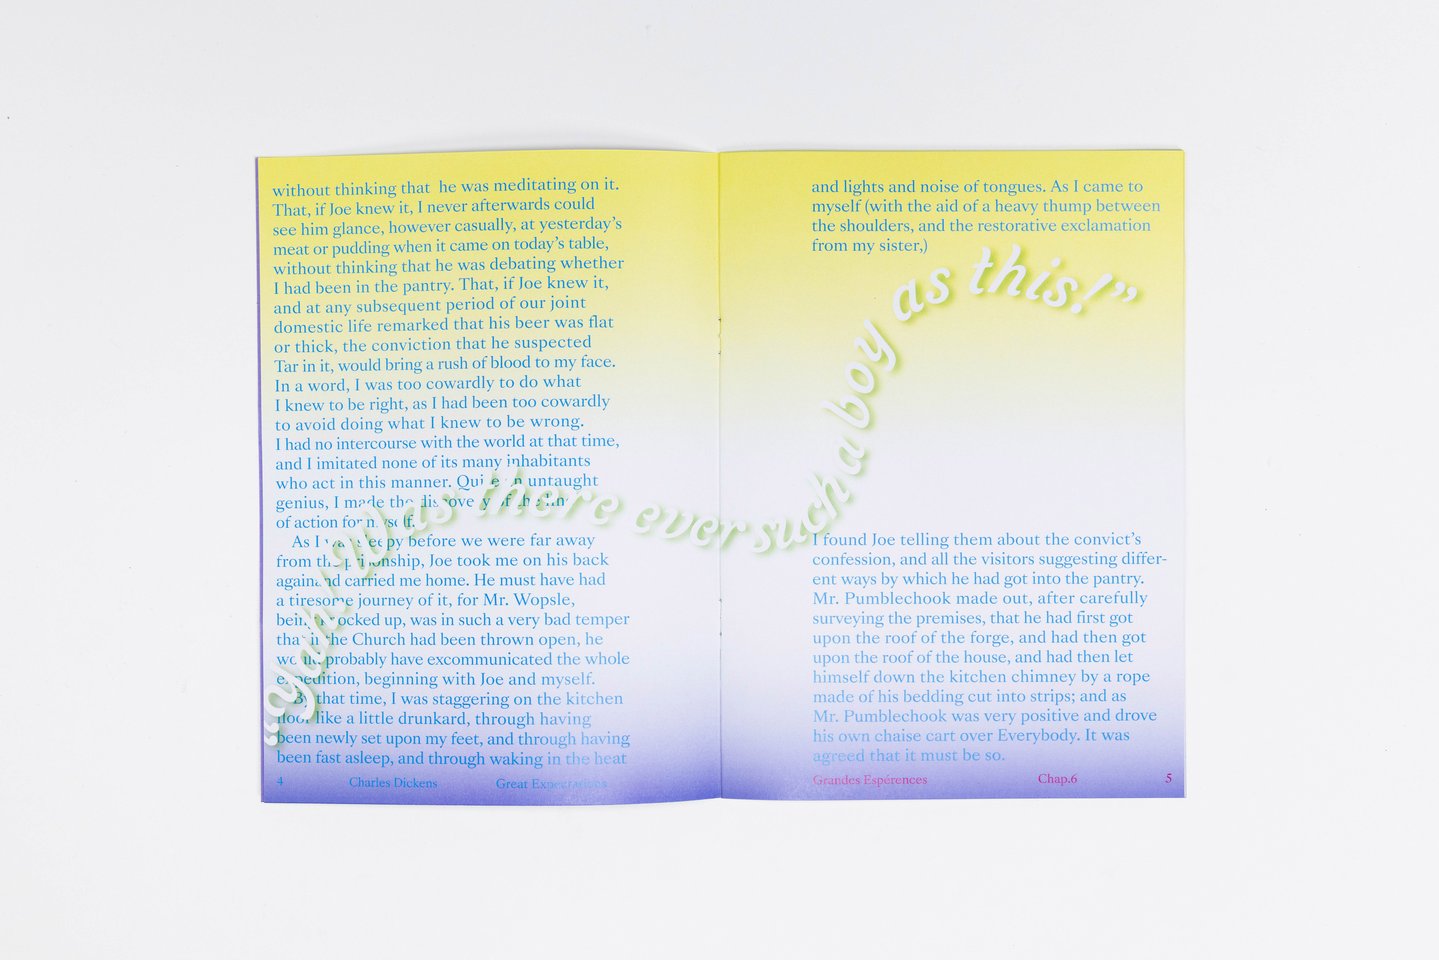 without thinking that he was meditating on it.
That, if Joe knew it, I never afterwards could
see him glance, however casually, at yesterday’s
meat or pudding when it came on today’s table,
without thinking that he was debating whether
I had been in the pantry. That, if Joe knew it,
and at any subsequent period of our joint
domestic life remarked that his beer was flat
or thick, the conviction that he suspected
Tar in it, would bring a rush of blood to my face.
In a word, I was too cowardly to do what
I knew to be right, as I had been too cowardly
to avoid doing what I knew to be wrong.
I had no intercourse with the world at that time,
and I imitated none of its many inhabitants
who act in this manner. Quite an untaught
genius, I made the discovery of the line
of action for myself.
As I was sleepy before we were far away
from the prisonship, Joe took me on his back
again and carried me home. He must have had
a tiresome journey of it, for Mr. Wopsle,
being knocked up, was in such a very bad temper
that if the Church had been thrown open, he
would probably have excommunicated the whole
expedition, beginning with Joe and myself.
By that time, I was staggering on the kitchen
floor like a little drunkard, through having
been newly set upon my feet, and through having
been fast asleep, and through waking in the heat
4 Charles Dickens Great Expectations
and lights and noise of tongues. As I came to
myself (with the aid of a heavy thump between
the shoulders, and the restorative exclamation
from my sister,)
“Yah! Was there ever such a boy as this!”
I found Joe telling them about the convict’s
confession, and all the visitors suggesting differ-
ent ways by which he had got into the pantry.
Mr. Pumblechook made out, after carefully
surveying the premises, that he had first got
upon the roof of the forge, and had then got
upon the roof of the house, and had then let
himself down the kitchen chimney by a rope
made of his bedding cut into strips; and as
Mr. Pumblechook was very positive and drove
his own chaise cart over Everybody. It was
agreed that it must be so.
Grandes Espérences Chap.6 5